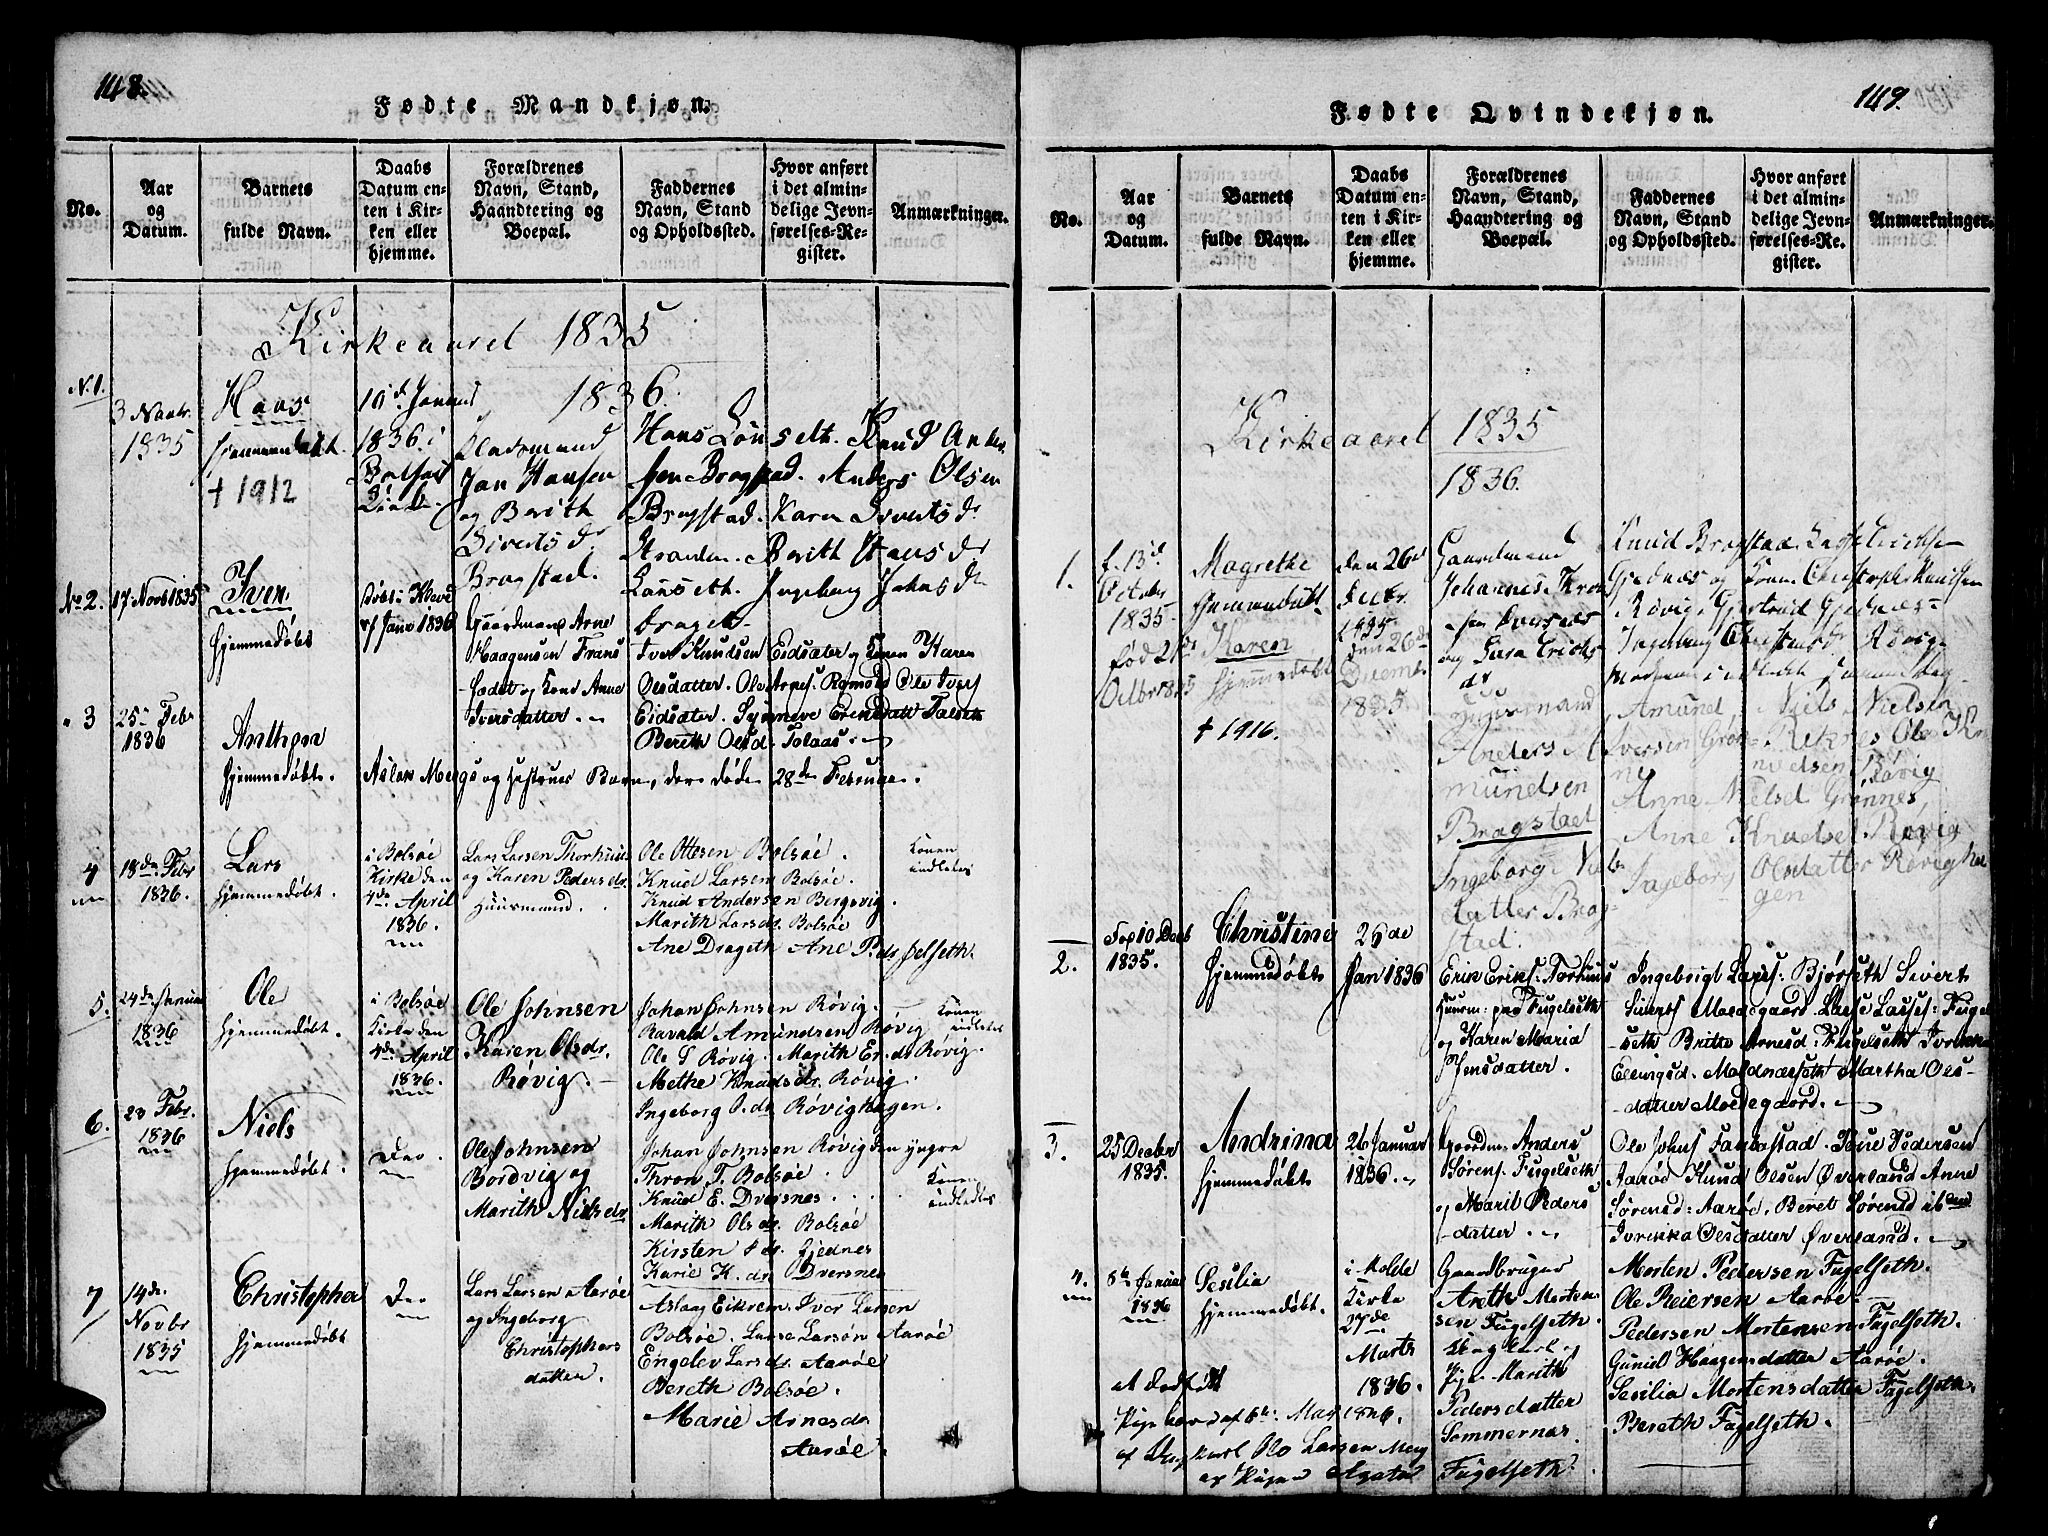 148.
Fødte Mandkjøn.
No.
Aar
og
Datum.
Barnets
fulde Navn.
Daabs
Datum en-
ten i Kir-
ken eller
hjemme.
Forældrenes
Navn, Stand,
Haandtering og
Boepæl.
Faddernes
Navn, Stand
og Opholdssted.
Hvor anført
i det almin-
delige Jevn-
førelses-Re-
gister.
Anmærkninger.
Kirkeaaret 1835
1836.
N. 1.
3 Novbr.
1835
Haas
† 1912
10d Januar
1836 i
Bolsøe
Kirke
Jon Hansen
og Berith
Siverts dr.
Bragstad.
Hans Lønseth. Knud Ander
sen Bragstad. Anders Olsen
Bragstad. Karen Siverts dr
Stranden. Berith Hans dr
Lønseth. Ingeborg Johns dr
Draget
No 2.
17 Novb 1835
Iver
Hjemmedøbt
1 Janv 1836
Gaardmand Arne
Haagensen Frans
-sædet og Kone Anne
Iversdatter. -
Iver Knudsen Eidsæter og Konen Karen
Olesdatter. Ole Arnes. Romøld Ole Ivers
Eidsæter. Synneve Erensdatt Talseth
Bereth Olesd. Solaas.
" 3
25de Febr
1836
Anthon
hjemmedøbt.
Aslak Mergs og hustrues Barn, der døde 28de Februar.
4
18de Febr
1836.
Lars
hjemmedøbt.
i Bolsøe
Kirke den
4de April
1836.
Lars Larsen Thorhuus
og Karen Peders dr.
Huusmand.
Ole Ottesen Bolsøe.
Knud Larsen Bolsøe.
Knud Andersen Bergsvig.
Marith Larsdr. Bolsøe
Ane Drageth Ane P.ds Hselseth.
Konen
indledet
5.
24de Januar
1836
Ole
hjemmedøbt.
i Bolsøe
Kirke den
4de April
1836.
Ole Johnsen
Karen Olsdr.
Røvig.
Johan Johnsen Røvig.
Ravald Amundsen Røvig
Ole S Røvig. Marith Er. dr Røvig.
Methe Knudsdr. Røvig.
Ingeborg O. dr Røvighagen.
Konen
indledet
6.
23 Febr.
1836
Niels
hjemmedøbt.
Do.
Ole Johnsen
Bordvig og
Marith Nielsdr
Johan Johnsen Røvig den yngre
Thron T. Bolsøe
Knud E. Dversnes
Marith Olsdr. Bolsøe
Kirsten P dr. Gjednes
Karie K. dr. Dversnes
Konen
indledet
7
14de
Novbr
1835
Christopher
hjemmedøbt
Do
Lars Larsen Aarøe
og Ingeborg
Christophers
datter.
Aslaag Eikrem. Iver Larsen
Bolsøe. Lasse Larsøn Aarøe
Engelev Larsdr. Aarøe
Bereth Bolsøe.
Marie Arnesdr
Aarøe.
149.
Fødte Qvindekjøn.
No.
Aar
og
Datum.
Barnets
fulde Navn.
Daabs
Datum en-
ten i Kir-
ken eller
hjemme.
Forældrenes
Navn, Stand,
Haandtering og
Boepæl.
Faddernes
Navn, Stand
og Opholdssted.
Hvor anført
i det almin-
delige Jevn-
førelses-Re-
gister.
Anmærkninger.
Kirkeaaret 1835
1836.
1.
f. 13d
October
1835
Magrethe
hjemmedøbt
den 26d
Decbr.
1835
Gaardmand
Johannes Thron
-sen Dversnes
og Sara Erichs
dr
Knud Bragstad Lasse Erichsen
Gjednæs og Konen Christophr Knutsen
Røvig. Gjertrud Gjednæs
fød 21de
Octbr 1835
Karen
hjemmedøbt
† 1916.
den 26de
Decembr
1835
Huusmand
Anders A
mundsen
Bragstad
Ingeborg Niels
datter Brag-
stad.
Amund Niels Nielsen
Iversen Grøn- Reknes Ole K
ne nudsen Røvig
Anne Nielsd Grønnes,
Anne Knudsd Røvig
Ingeborg Olsdatter Røvigha
gen
2.
Fød 10 Decb
1835.
Christine
hjemmedøbt
26de
Jan 1836
Erik Eriks. Torhuus
Huusm: paa Fugelseth
og Karen Maria
Jensdatter.
Ingebrigt Lases. Bjørseth Sivert
Siverts Moldegaard Lasse Lasses. Fugel
-seth Britte Arnesd. Fugelseth Iverikka
Ellingsd. Moldnæsseth Martha Oles-
-datter Moldegaard.
3.
25 Decber
1835.
Andrina
hjemmedøbt
26 Januar
1836.
Gaardm. Anders
Sørens. Fugelseth
og Marit Peders
-datter.
Ole Johns Fannestad. Peder Pedersen
Aarød Knud Olsen Øverland Anne
Sørensd: Aarøe. Beret Sørensd ibdm
Iverikka Olesdatter Øverland.
4.
8de Januar
1836
Sesilia
hjemmedøbt.
i Molde
Kirke
27de
Marts
1836.
Gaardbruger
Areth Morten
sen Fugelseth.
Ungkarl og
Pige Marith
Pedersdatter
Sommernæs
Fugelseth.
Morten Pedersen Fugelseth.
Ole Reiersen Aarøe.
Pedersen Mortensen Fugelseth.
Guniel Haagensdatter Aarøe.
Sesilia Mortensdatter Fugelseth.
Bereth Fugelseth.
et Dødfødt
Pige barn d. 6te Mar 1826.
af Ungkarl Ole Larsen
og Pigen